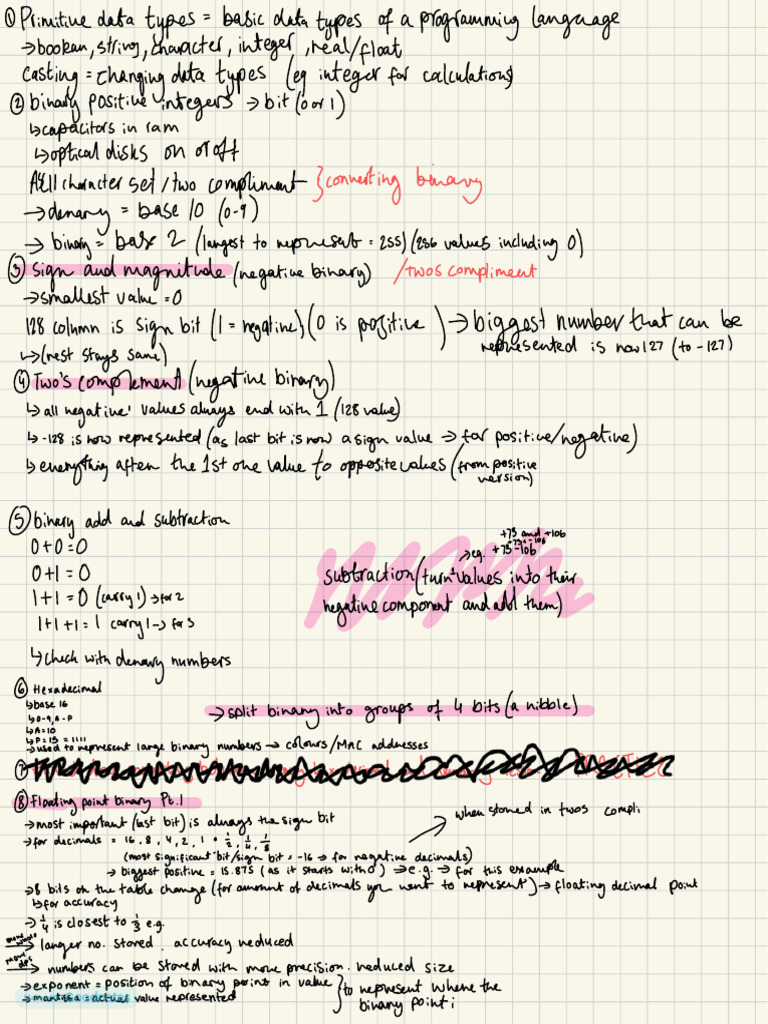 ① Primitive data types = basic data types of a programming language
→ boolean, string, character, integer, real/float
casting = changing data types (eg integer for calculations)
② binary positive integers → bit (0 or 1)
↳ capacitors in ram
↳ optical disks on or off
character set / two compliment } converting binary
→ denary = base 10 (0-9)
→ binary = base 2 (largest to represent = 255) (256 values including 0)
③ sign and magnitude (negative binary) /twos compliment
→ smallest value = 0
128 column is sign bit (1 = negative) (0 is positive) → biggest number that can be
represented is now 127 (to -127)
↳ (rest stays same)
④ Two's complement (negative binary)
↳ all negative' values always end with 1 (128 value)
↳ -128 is now represented (as last bit is now a sign value → for positive/negative)
↳ everything after the 1st one value to opposite values (from positive
version)
⑤ binary add and subtraction
0+0=0
0+1=0
1+1=0 (carry 1) → for 2
1+1+1=1 carry 1 → for 3
↳ check with denary numbers
+75 and +106
+75+-106
→ eg. +75-106
subtraction (turn values into their
negative component and add them)
⑥ Hexadecimal
↳ base 16
↳ 0-9, A-F
↳ A=10
↳ F=15=1111
→ split binary into groups of 4 bits (a nibble)
→ used to represent large binary numbers → colours/MAC addresses
⑧ Floating point binary Pt.1
→ most important (last bit) is always the sign bit
→ for decimals = 16, 8, 4, 2, 1 • ½, ¼, ⅛
when stored in twos compli
(most significant bit/sign bit = -16 → for negative decimals)
→ biggest positive = 15.875 (as it starts with 0) → e.g. → for this example
→ 8 bits on the table change (for amount of decimals you want to represent) → floating decimal point
↳ for accuracy
→ ¼ is closest to ⅓ e.g.
more whole → larger no. stored. accuracy reduced
more dps → numbers can be stored with more precision. reduced size
→ exponent = position of binary point in value
→ mantissa = actual value represented
} to represent where the
binary point i